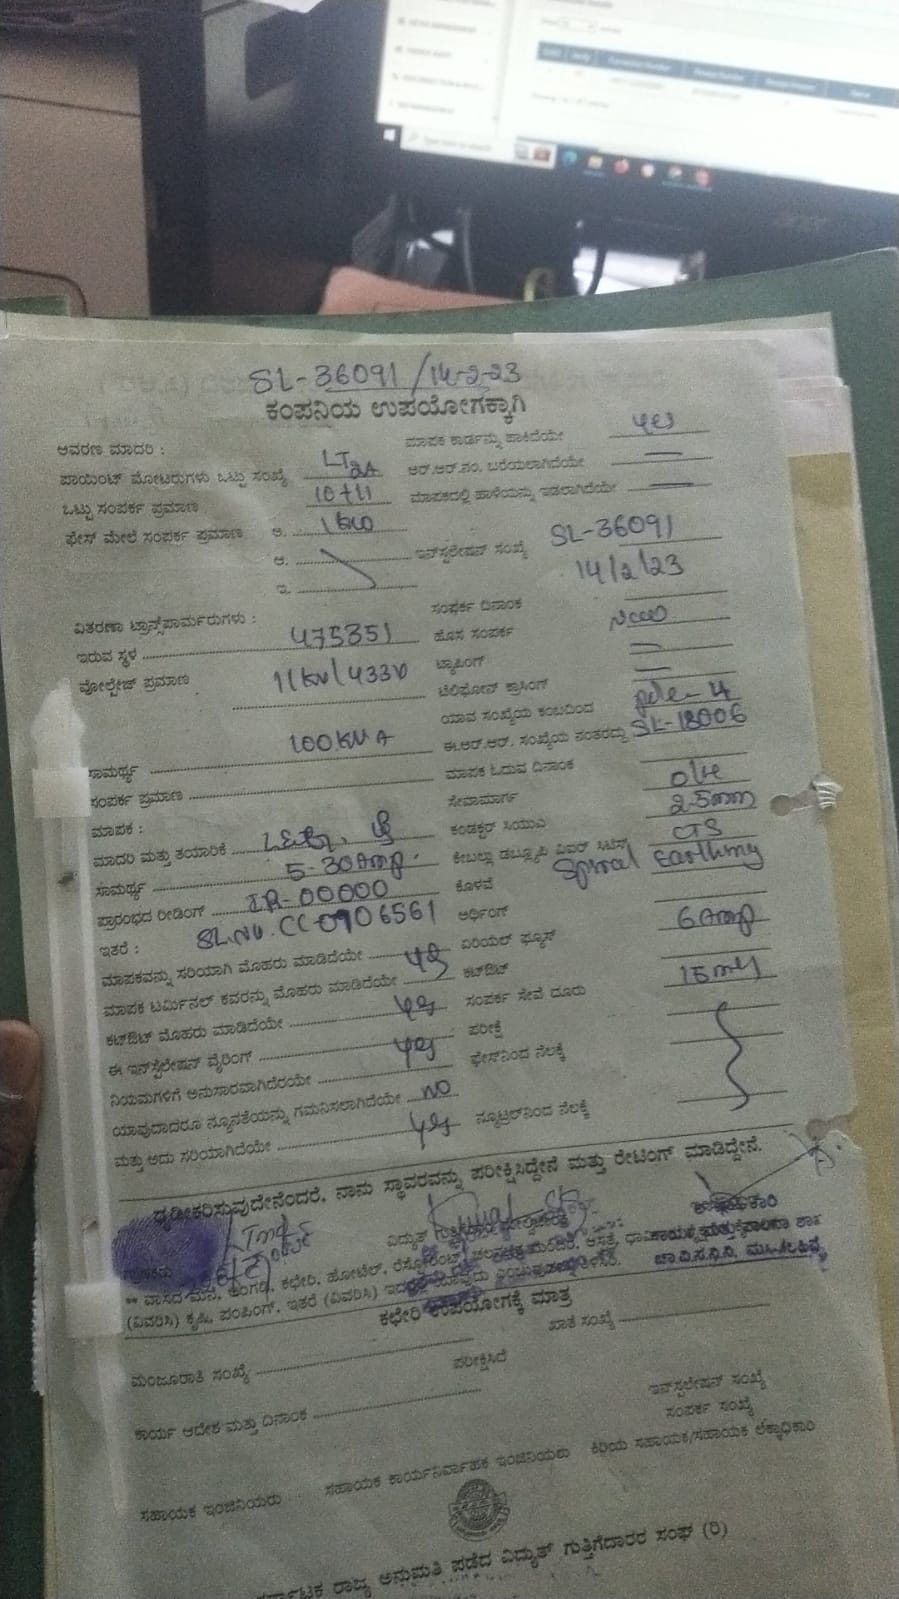 Type here to search
SL-36091/14-2-23
ಕಂಪನಿಯ ಉಪಯೋಗಕ್ಕಾಗಿ
ಆವರಣ ಮಾದರಿ : LT2A
ಮಾಪಕ ಕಾರ್ಡನ್ನು ಹಾಕಿದೆಯೇ
ಪಾಯಿಂಟ್ ಮೋಟರುಗಳು ಒಟ್ಟು ಸಂಖ್ಯೆ 10+11
ಆರ್.ಆರ್.ನಂ. ಬರೆಯಲಾಗಿದೆಯೇ
ಒಟ್ಟು ಸಂಪರ್ಕ ಪ್ರಮಾಣ 1KW
ಮಾಪಕದಲ್ಲಿ ಹಾಳೆಯನ್ನು ಇಡಲಾಗಿದೆಯೇ
ಫೇಸ್ ಮೇಲೆ ಸಂಪರ್ಕ ಪ್ರಮಾಣ ಅ.
ಆ.
ಇನ್‌ಸ್ಟಲೇಷನ್ ಸಂಖ್ಯೆ SL-36091
ಇ.
ವಿತರಣಾ ಟ್ರಾನ್ಸ್‌ಪಾರ್ಮರುಗಳು :
ಸಂಪರ್ಕ ದಿನಾಂಕ 14/2/23
ಇರುವ ಸ್ಥಳ 475351
ಹೊಸ ಸಂಪರ್ಕ New
ವೋಲ್ಟೇಜ್ ಪ್ರಮಾಣ 11KV/433V
ಟ್ಯಾಪಿಂಗ್
ಟೆಲಿಫೋನ್ ಕ್ರಾಸಿಂಗ್
ಯಾವ ಸಂಖ್ಯೆಯ ಕಂಬದಿಂದ pole-4
ಸಾಮರ್ಥ್ಯ 100KVA
ಈ.ಆರ್.ಆರ್. ಸಂಖ್ಯೆಯ ನಂತರದ್ದು SL-18006
ಸಂಪರ್ಕ ಪ್ರಮಾಣ
ಮಾಪಕ ಓದುವ ದಿನಾಂಕ
ಮಾಪಕ :
ಸೇವಾಮಾರ್ಗ O/H
ಮಾದರಿ ಮತ್ತು ತಯಾರಿಕೆ
ಕಂಡಕ್ಟರ್ ಸಿಯುಎ 2-5mm
ಸಾಮರ್ಥ್ಯ 5-30Amp
ಕೇಬಲ್ಲು ಡಬ್ಲ್ಯೂಪಿ ವಿಐರ್ ಸಿಟಿಎಸ್ CTS
ಪ್ರಾರಂಭದ ರೀಡಿಂಗ್ IR-00000
ಕೊಳವೆ
ಇತರೆ : SL.No. CC0906561
ಅರ್ಥಿಂಗ್ Spiral Earthing
ಮಾಪಕವನ್ನು ಸರಿಯಾಗಿ ಮೊಹರು ಮಾಡಿದೆಯೇ yes
ಏರಿಯಲ್ ಫ್ಯೂಸ್
ಮಾಪಕ ಟರ್ಮಿನಲ್ ಕವರನ್ನು ಮೊಹರು ಮಾಡಿದೆಯೇ
ಕಟ್‌ಔಟ್ 6Amp
ಕಟ್‌ಔಟ್ ಮೊಹರು ಮಾಡಿದೆಯೇ yes
ಸಂಪರ್ಕ ಸೇವೆ ದೂರು 15mt
ಈ ಇನ್‌ಸ್ಟೆಲೇಷನ್ ವೈರಿಂಗ್
ಪರೀಕ್ಷೆ
ನಿಯಮಗಳಿಗೆ ಅನುಸಾರವಾಗಿದೆರಯೇ yes
ಫೇಸ್‌ನಿಂದ ನೆಲಕ್ಕೆ
ಯಾವುದಾದರೂ ನ್ಯೂನತೆಯನ್ನು ಗಮನಿಸಲಾಗಿದೆಯೇ NO
ಮತ್ತು ಅದು ಸರಿಯಾಗಿದೆಯೇ yes
ನ್ಯೂಟ್ರಲ್‌ನಿಂದ ನೆಲಕ್ಕೆ
ಧೃಡೀಕರಿಸುವುದೇನೆಂದರೆ, ನಾನು ಸ್ಥಾವರವನ್ನು ಪರೀಕ್ಷಿಸಿದ್ದೇನೆ ಮತ್ತು ರೇಟಿಂಗ್ ಮಾಡಿದ್ದೇನೆ.
ವಿದ್ಯುತ್
** ವಾಸದ ಮನೆ, ಅಂಗಡಿ, ಕಛೇರಿ, ಹೋಟೆಲ್, ರೆಸ್ಟೋರೆಂಟ್
(ವಿವರಿಸಿ) ಕೃಷಿ, ಪಂಪಿಂಗ್, ಇತರೆ (ವಿವರಿಸಿ)
ಕಛೇರಿ ಉಪಯೋಗಕ್ಕೆ ಮಾತ್ರ
ಮಂಜೂರಾತಿ ಸಂಖ್ಯೆ
ಖಾತೆ ಸಂಖ್ಯೆ
ಪರೀಕ್ಷಿಸಿದೆ
ಕಾರ್ಯ ಆದೇಶ ಮತ್ತು ದಿನಾಂಕ
ಇನ್‌ಸ್ಟಲೇಷನ್ ಸಂಖ್ಯೆ
ಸಂಪರ್ಕ ಸಂಖ್ಯೆ
ಸಹಾಯಕ ಇಂಜಿನಿಯರು
ಸಹಾಯಕ ಕಾರ್ಯನಿರ್ವಾಹಕ ಇಂಜಿನಿಯರು
ಕಿರಿಯ ಸಹಾಯಕ/ಸಹಾಯಕ ಲೆಕ್ಕಾಧಿಕಾರಿ
ಕರ್ನಾಟಕ ರಾಜ್ಯ ಅನುಮತಿ ಪಡೆದ ವಿದ್ಯುತ್ ಗುತ್ತಿಗೆದಾರರ ಸಂಘ (ರಿ)